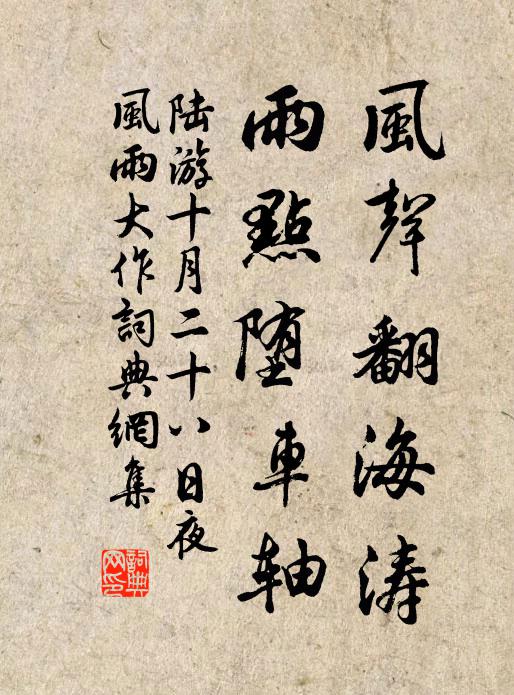 風聲翻海濤
雨點墮車軸
陆游十月二十八日夜
風雨大作詞典網集
詞典
网印